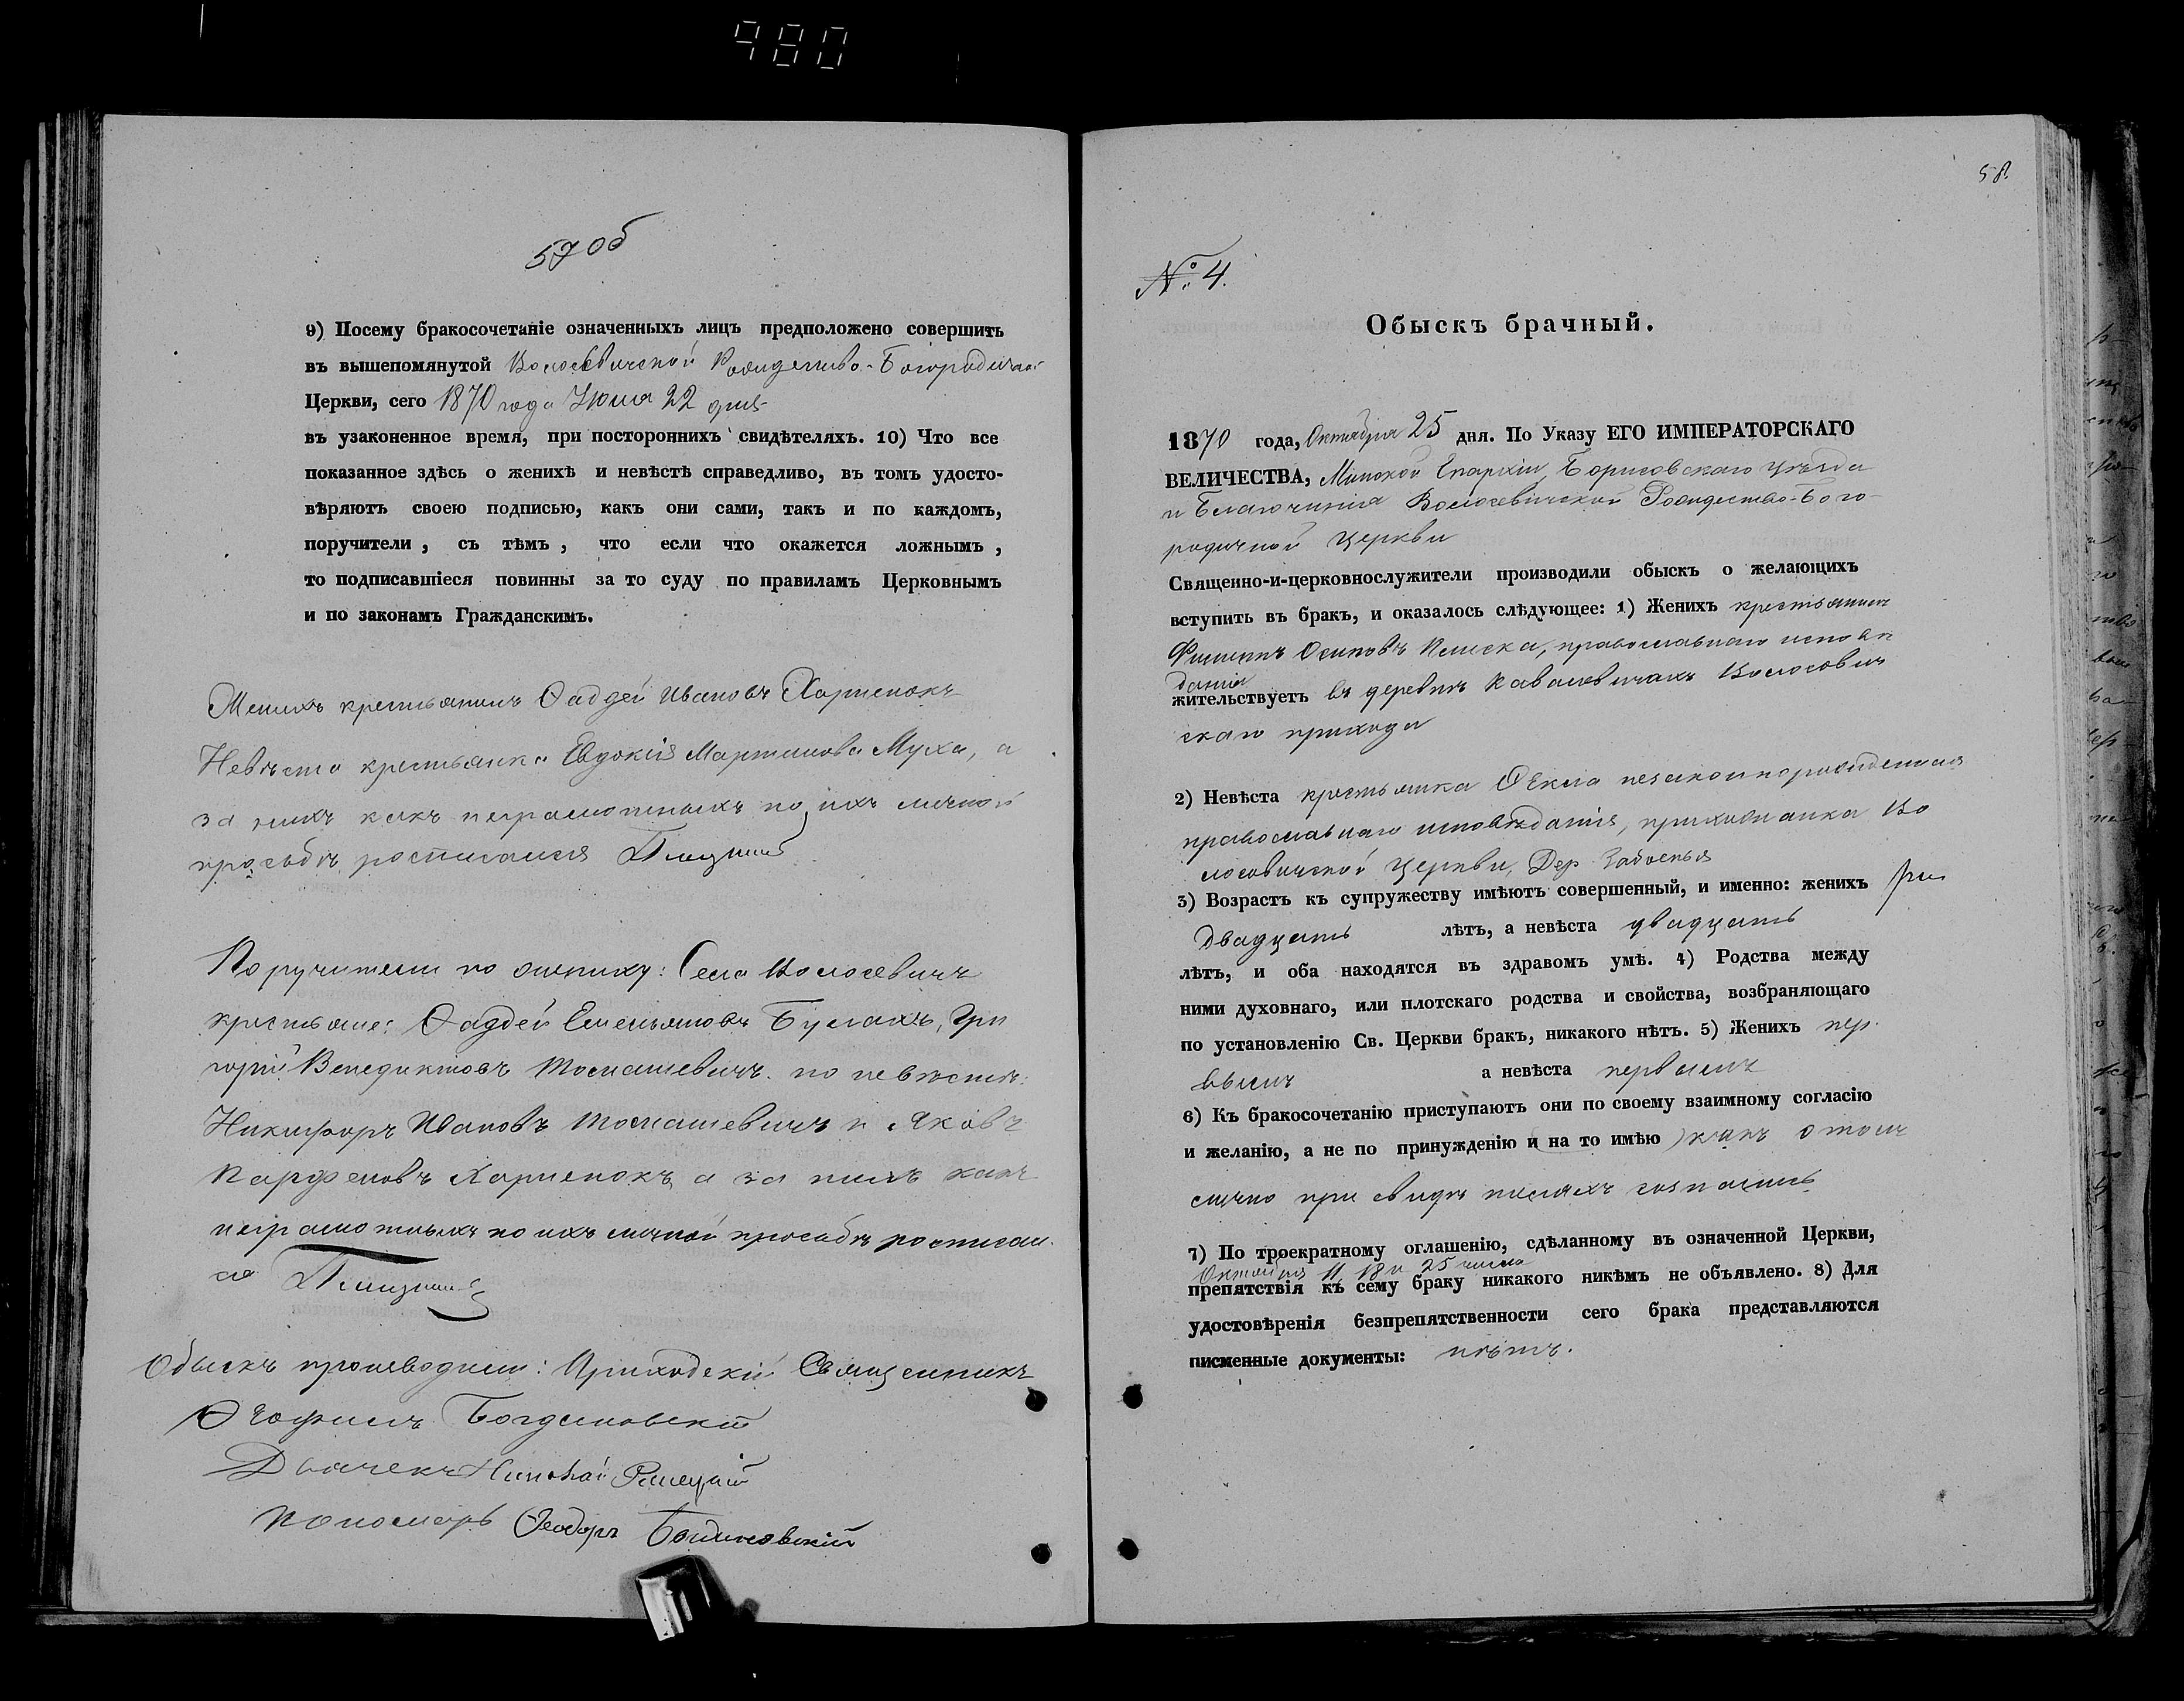 980
57об
9) Посему бракосочетаніе означенныхъ лицъ предположено совершить
въ вышепомянутой Волосевичской Рождество-Богородичной
Церкви, сего 1870 года Іюня 22 дня
въ узаконенное время, при постороннихъ свидѣтеляхъ. 10) Что все
показанное здѣсь о женихѣ и невѣстѣ справедливо, въ томъ удосто-
вѣряютъ своею подписью, какъ они сами, такъ и по каждомъ,
поручители, съ тѣмъ, что если что окажется ложнымъ,
то подписавшіеся повинны за то суду по правиламъ Церковнымъ
и по законамъ Гражданскимъ.
Женихъ крестьянинъ Ѳаддей Ивановъ Харченокъ
Невѣста крестьянка Евдокія Мартинова Муха, а
за нихъ какъ неграмотныхъ по ихъ личной
просьбѣ росписался
Поручители по жениху: Села Волосевичъ
крестьяне: Ѳаддей Емельяновъ Булахъ, Гри
горій Венедиктовъ Томашевичъ. по невѣстѣ:
Никифоръ Ивановъ Томашевичъ и Яковъ
Парфеновъ Харченокъ, а за нихъ какъ
неграмотныхъ по ихъ личной просьбѣ росписал
ся
Обыскъ производили: Приходскій Священникъ
Ѳеофилъ Богдановскій
Дьячекъ Николай
Пономарь Ѳеодоръ
58.
№ 4.
Обыскъ брачный.
1870 года, Октября 25 дня. По Указу ЕГО ИМПЕРАТОРСКАГО
ВЕЛИЧЕСТВА, Минской Епархіи Борисовскаго уѣзда
и Благочинія Волосевичской Рождество-Бого-
родичной церкви
Священно-и-церковнослужители производили обыскъ о желающихъ
вступить въ бракъ, и оказалось слѣдующее: 1) Женихъ крестьянинъ
Филиппъ Осиповъ православнаго исповѣ
данія
жительствуетъ въ деревнѣ Ковалевичахъ Волосович
скаго прихода
2) Невѣста крестьянка Ѳекла незаконнорожденная
православнаго исповѣданія, прихожанка Во
лосовичской церкви, Дер.
3) Возрастъ къ супружеству имѣютъ совершенный, и именно: женихъ
двадцать лѣтъ, а невѣста двадцать
лѣтъ, и оба находятся въ здравомъ умѣ. 4) Родства между
ними духовнаго, или плотскаго родства и свойства, возбраняющаго
по установленію Св. Церкви бракъ, никакого нѣтъ. 5) Женихъ пер-
вымъ а невѣста первымъ
6) Къ бракосочетанію приступаютъ они по своему взаимному согласію
и желанію, а не по принужденію (и на то имѣю) какъ о томъ
лично при сознались
7) По троекратному оглашенію, сдѣланному въ означенной Церкви,
Октября 11, 18 и 25 числа
препятствія къ сему браку никакого никѣмъ не объявлено. 8) Для
удостовѣренія безпрепятственности сего брака представляются
писменные документы: нѣтъ.